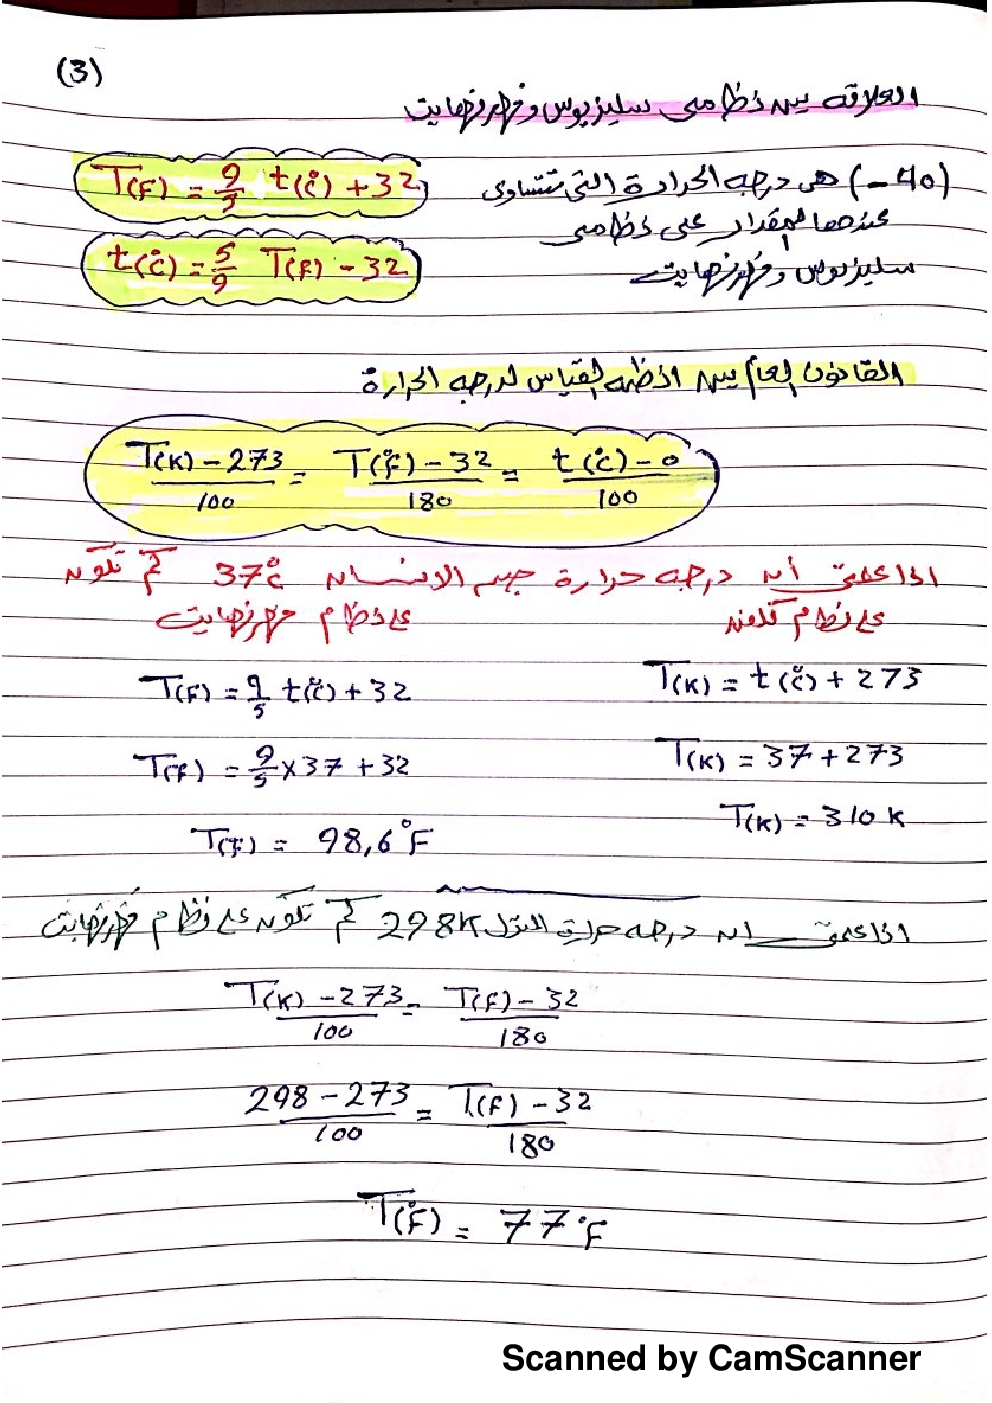 (3)
العلاقه بين نظامي سليزيوس وفهرنهايت
T(F) = 9/5 t(c°) + 32
(-40) هي درجه الحرارة التي تتساوى
عندها المقدار على نظامي
t(c°) = 5/9 T(F) - 32
سليزيوس وفهرنهايت
القانون العام بين انظمه القياس لدرجه الحرارة
T(K) - 273 / 100 = T(F°) - 32 / 180 = t(c°) - 0 / 100
اذا علمتي أن درجه حرارة جسم الانسان 37c° كم تكون
على نظام كلفن
على نظام فهرنهايت
T(K) = t(c°) + 273
T(F) = 9/5 t(c°) + 32
T(K) = 37 + 273
T(F) = 9/5 x 37 + 32
T(K) = 310 K
T(F) = 98,6°F
اذا علمتي ان درجه حرارة 298K كم تكون على نظام فهرنهايت
T(K) - 273 / 100 = T(F) - 32 / 180
298 - 273 / 100 = T(F) - 32 / 180
T(F°) = 77°F
Scanned by CamScanner